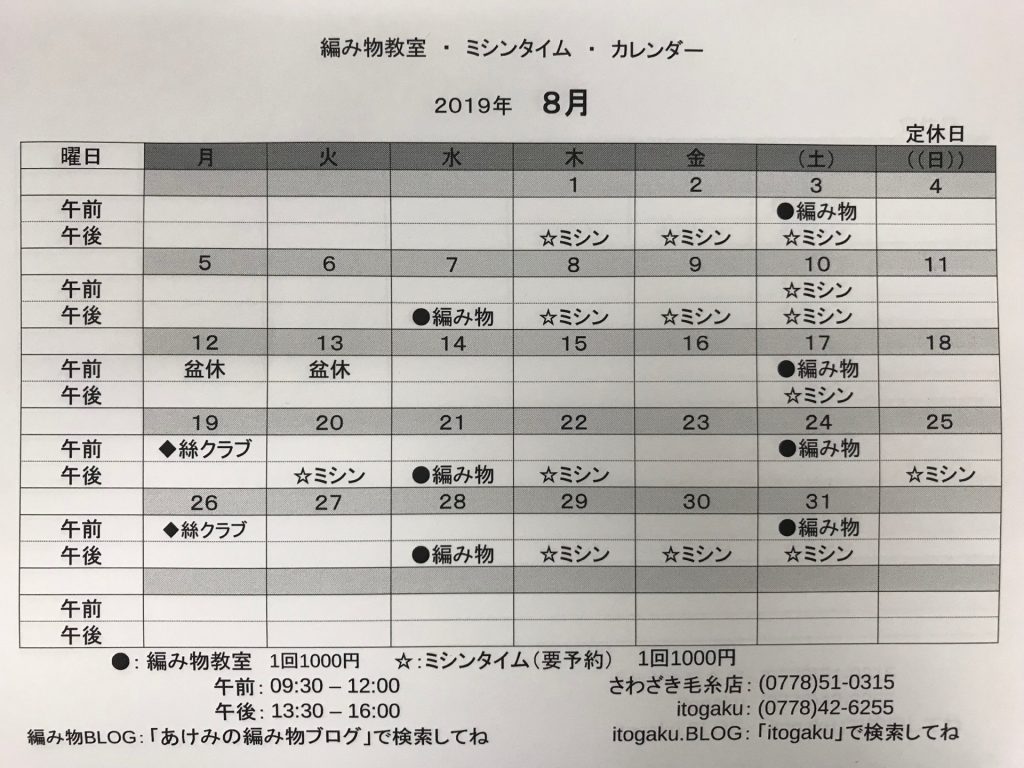 編み物教室 ・ ミシンタイム ・ カレンダー
2019年 8月
定休日
曜日 月 火 水 木 金 (土) ((日))
1 2 3 4
午前 ●編み物
午後 ☆ミシン ☆ミシン ☆ミシン
5 6 7 8 9 10 11
午前 ☆ミシン
午後 ●編み物 ☆ミシン ☆ミシン ☆ミシン
12 13 14 15 16 17 18
午前 盆休 盆休 ●編み物
午後 ☆ミシン
19 20 21 22 23 24 25
午前 ◆絲クラブ ●編み物
午後 ☆ミシン ●編み物 ☆ミシン ☆ミシン
26 27 28 29 30 31
午前 ◆絲クラブ ●編み物
午後 ●編み物 ☆ミシン ☆ミシン ☆ミシン
午前
午後
●：編み物教室 1回1000円 ☆：ミシンタイム（要予約） 1回1000円
午前：09:30 – 12:00 さわざき毛糸店：(0778)51-0315
午後：13:30 – 16:00 itogaku：(0778)42-6255
編み物BLOG：「あけみの編み物ブログ」で検索してね itogaku.BLOG：「itogaku」で検索してね